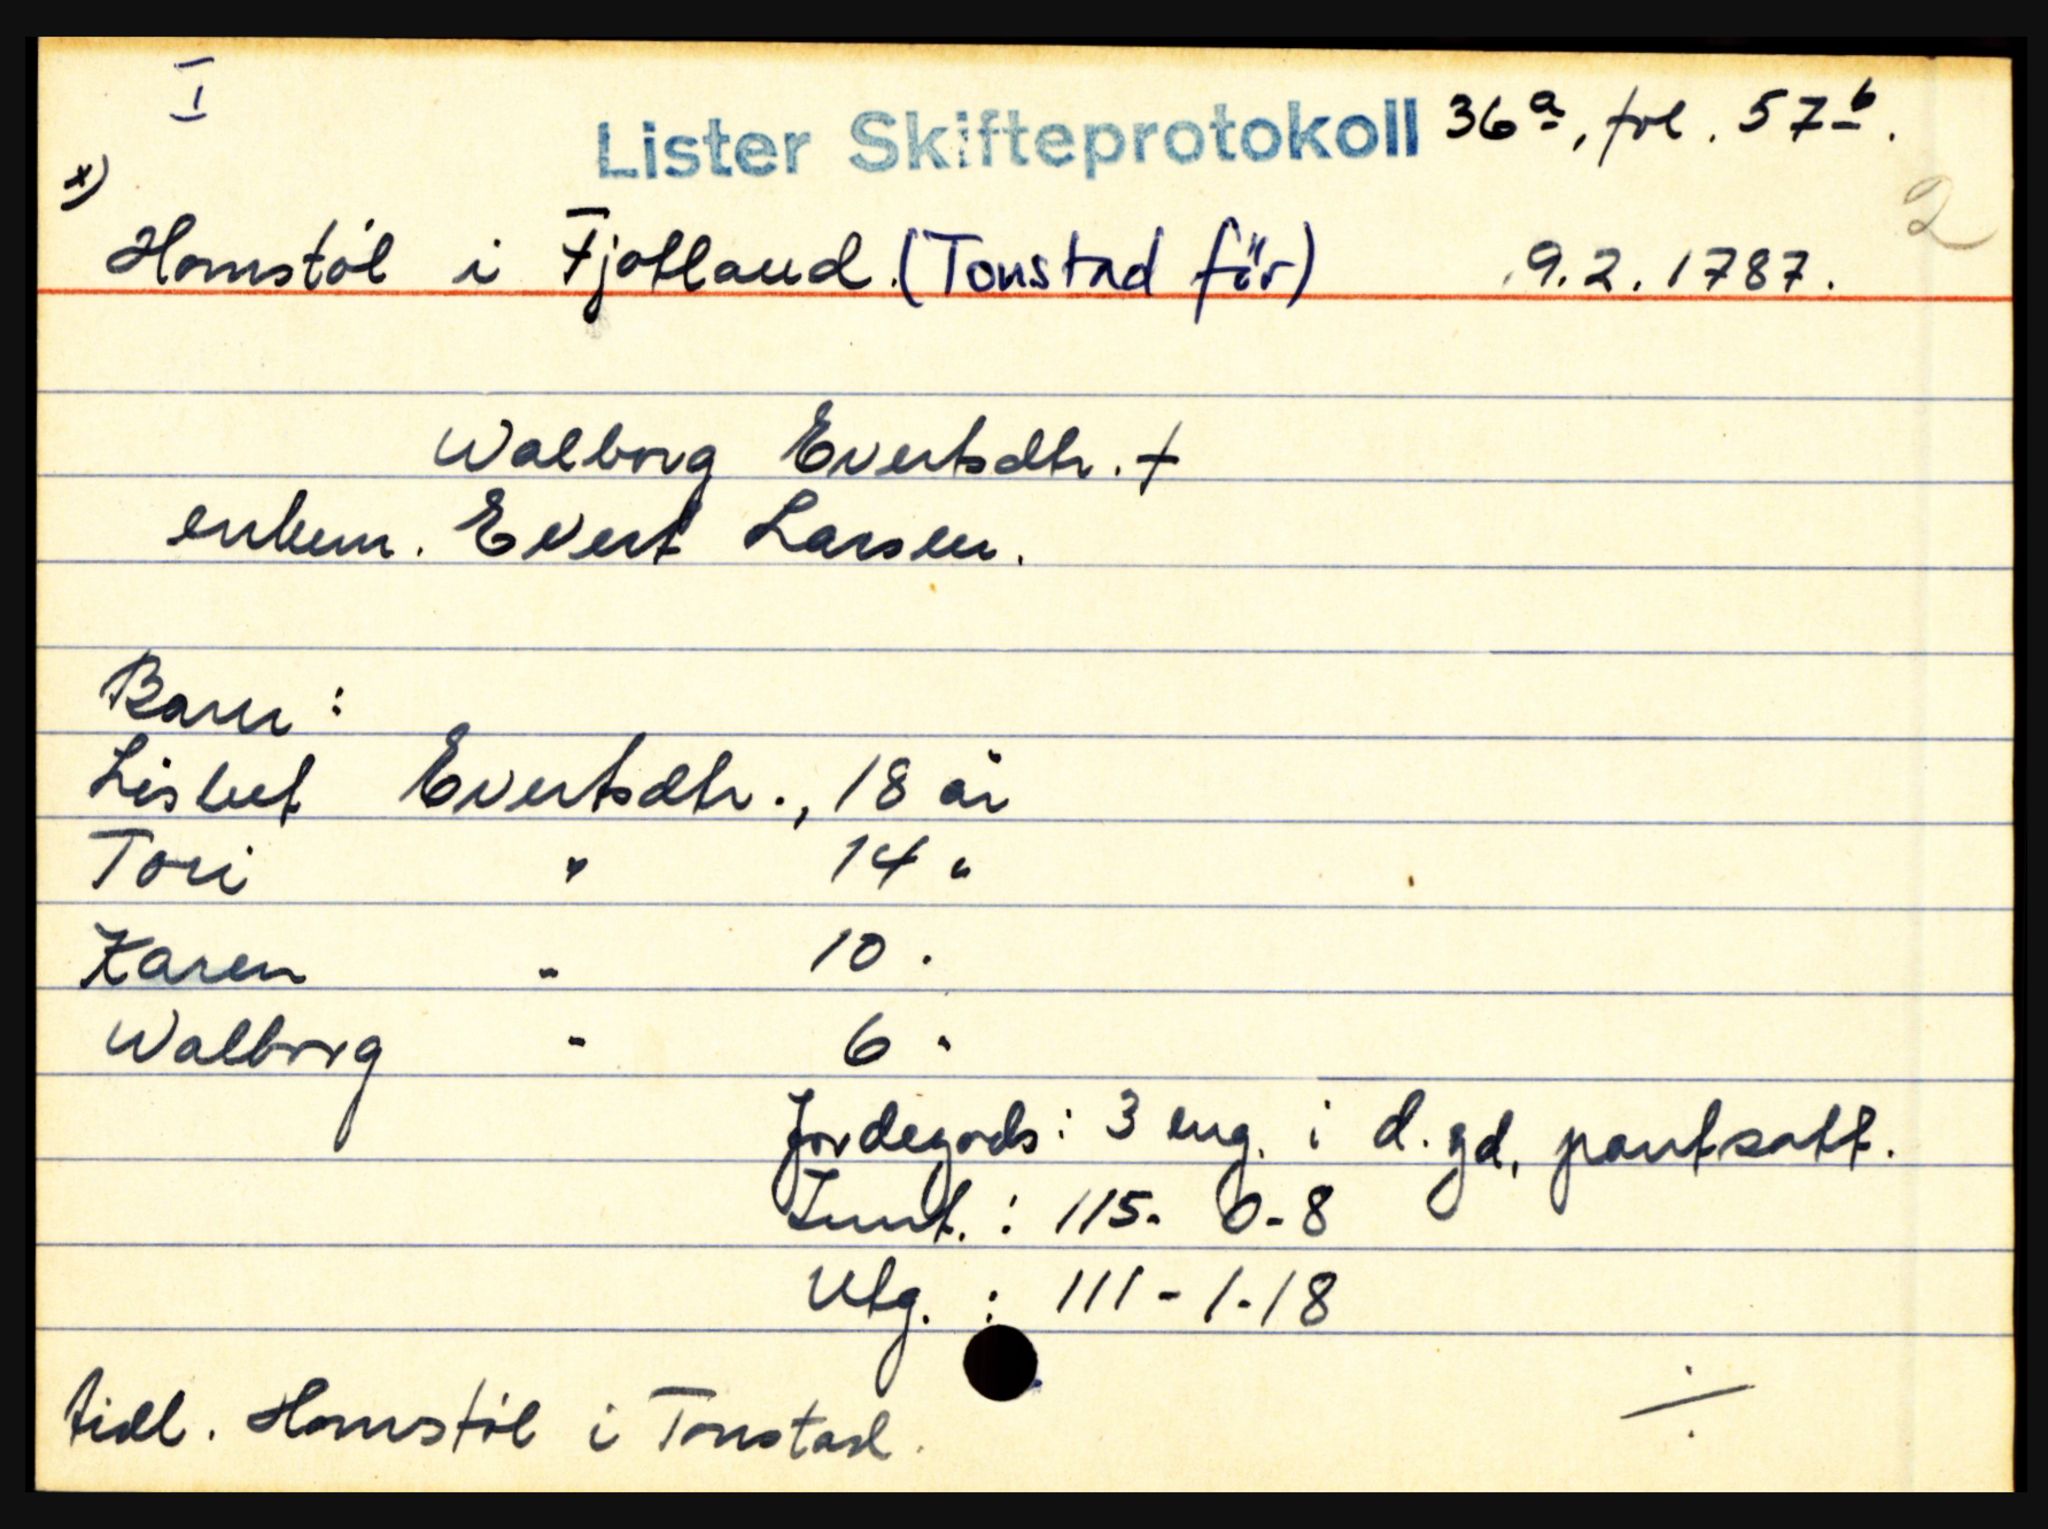 I
Lister Skifteprotokoll 36a, fol. 57b.
2
x)
Homstöl i Fjotland. (Tonstad för) 9.2.1787.
Walborg Evertsdtr. +
enkem. Evert Larsen.
Barn:
Lisbet Evertsdtr., 18 år
Tori " 14 "
Karen " 10 "
Walborg " 6 "
Jordegods: 3 eng. i d. gd, pantsatt.
Innt.: 115- 0-8
Utg. : 111-1-18
tidl. Homstöl i Tonstad.